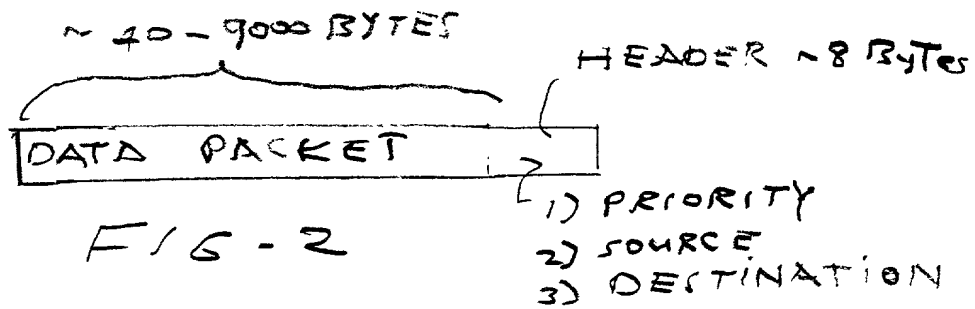 ~ 40-9000 BYTES
HEADER ~8 ByTes
DATA PACKET
1) PRIORITY
2) SOURCE
3) DESTINATION
FIG-2